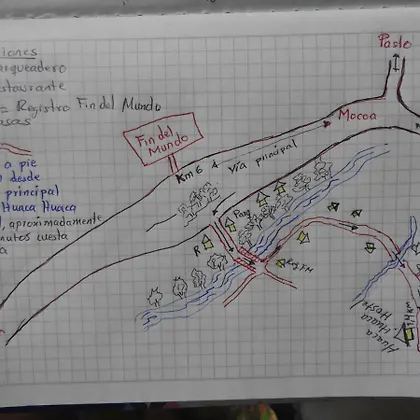 iones
arqueadero
staurante
= Registro Fin del Mundo
asas
a pie
desde
principal
Huaca Huaca
, aproximadamente
nutos cuesta
a
Pasto
Mocoa
Fin del
Mundo
Km 6
vía principal
Parq
R
Reg FM
Huaca
Huaca
Hostal